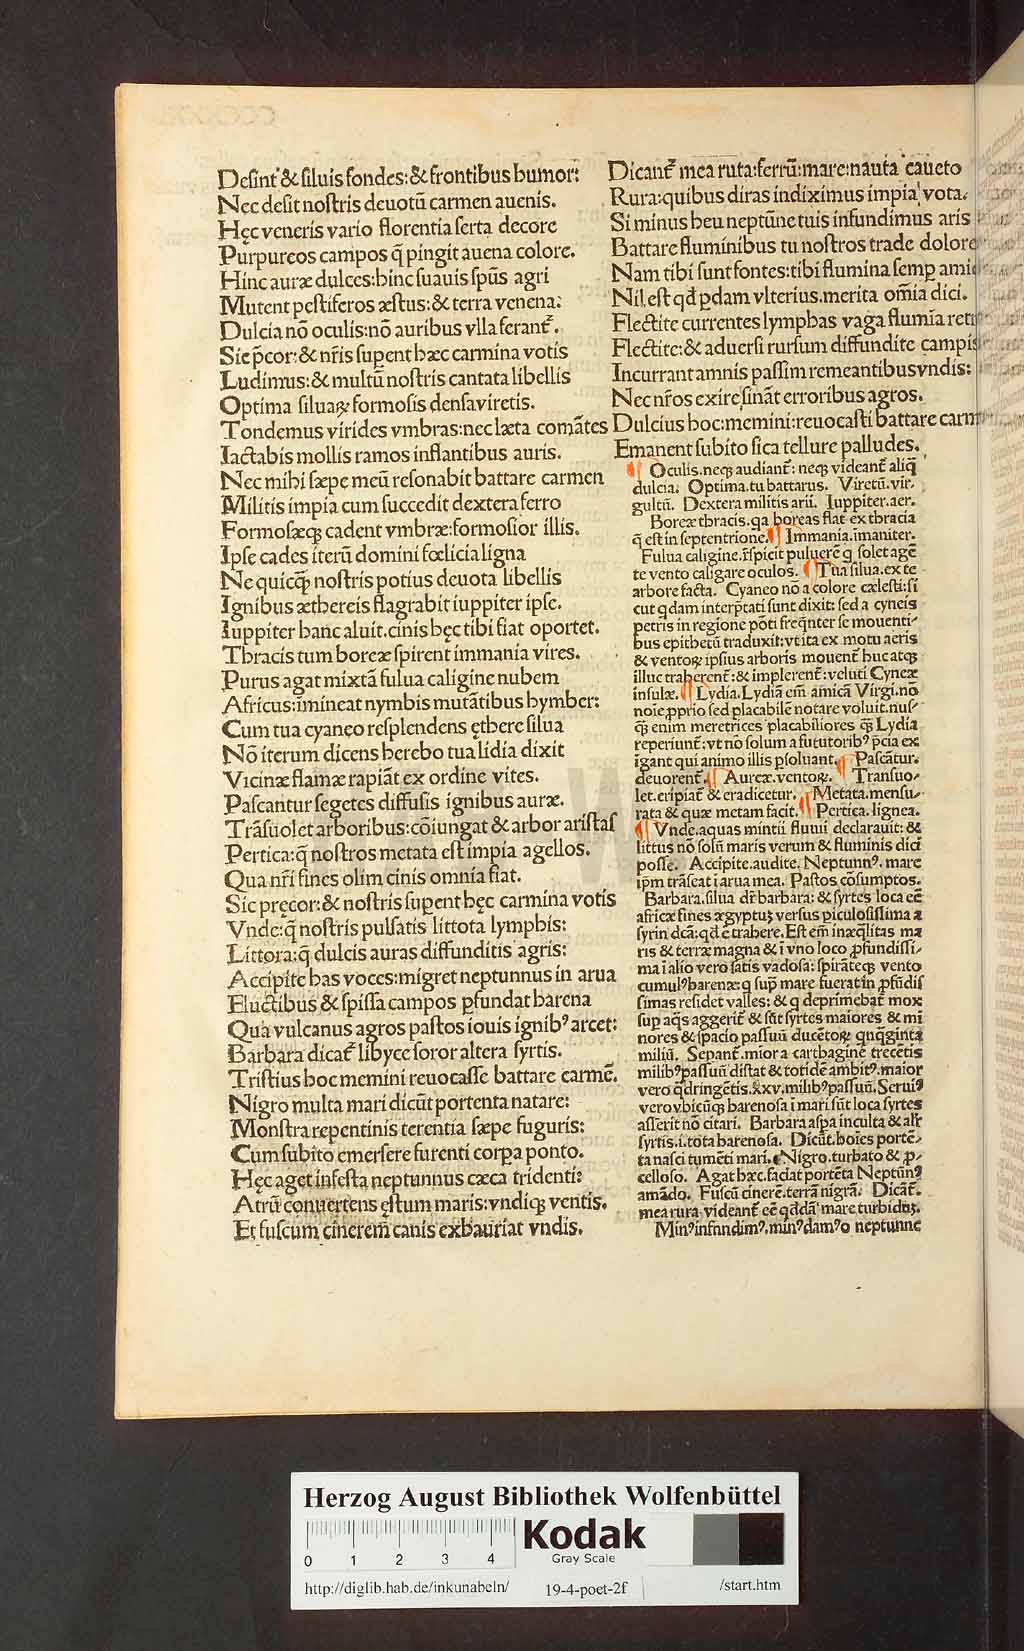 Desint & siluis fondes: & frontibus humor:
Nec desit nostris deuotū carmen auenis.
Hęc veneris vario florentia serta decore
Purpureos campos q̄ pingit auena colore.
Hinc auræ dulces: hinc suauis spūs agri
Mutent pestiferos æstus: & terra venena:
Dulcia nō oculis: nō auribus vlla ferant᷑.
Sic p̄cor: & nr̄is supent hæc carmina votis
Ludimus: & multū nostris cantata libellis
Optima siluaꝝ formosis densa viretis.
Tondemus virides vmbras: nec læta comātes
Iactabis mollis ramos inflantibus auris.
Nec mihi sæpe meū resonabit battare carmen
Militis impia cum succedit dextera ferro
Formosæqꝫ cadent vmbræ: formosior illis.
Ipse cades iterū domini fœlicia ligna
Ne quicq̄ꝫ nostris potius deuota libellis
Ignibus æthereis flagrabit iuppiter ipse.
Iuppiter hanc aluit. cinis hęc tibi fiat oportet.
Thracis tum boreæ spirent immania vires.
Purus agat mixtā fulua caligine nubem
Africus: īmineat nymbis mutātibus hymber:
Cum tua cyaneo resplendens ęthere silua
Nō iterum dicens herebo tua lidia dixit
Vicinæ flamæ rapiāt ex ordine vites.
Pascantur segetes diffusis ignibus auræ.
Trāsuolet arboribus: cōiungat & arbor aristas
Pertica: q̄ nostros metata est impia agellos.
Qua nr̄i fines olim cinis omnia fiat.
Sic pręcor: & nostris supent hęc carmina votis
Vnde: q̄ nostris pulsatis littota lymphis:
Littora: q̄ dulcis auras diffunditis agris:
Accipite has voces: migret neptunnus in arua
Fluctibus & spissa campos ꝓfundat harena
Qua vulcanus agros pastos iouis ignibꝰ arcet:
Barbara dicat᷑ libycę soror altera syrtis.
Tristius hoc memini reuocasse battare carmē.
Nigro multa mari dicūt portenta natare:
Monstra repentinis terentia sæpe fuguris:
Cum subito emersere furenti corꝑa ponto.
Hęc aget infesta neptunnus cæca tridenti:
Atrū conuertens ęstum maris: vndiqꝫ ventis.
Et fuscum cinerem canis exhauriat vndis.
Dicant᷑ mea ruta: ferrū: mare: nauta caueto
Rura: quibus diras indiximus impia vota.
Si minus heu neptūne tuis infundimus aris
Battare fluminibus tu nostros trade dolore
Nam tibi sunt fontes: tibi flumina semꝑ ami
Nil est qđ ꝑdam vlterius. merita om̄ia dici.
Flectite currentes lymphas vaga flumīa ret
Flectite: & aduersi rursum diffundite campis
Incurrant amnis passim remeantibus vndis:
Nec nr̄os exire sināt erroribus agros.
Dulcius hoc: memini: reuocasti battare carm
Emanent subito sica tellure palludes.
Oculis. neqꝫ audiant᷑: neqꝫ videant᷑ aliq̄
dulcia. Optima. tu battarus. Viretū. vir-
gultū. Dextera militis arii. Iuppiter. aer.
Boreæ thracis. qa boreas flat ex thracia
q̄ est in septentrione. Immania. imaniter.
Fulua caligine. r̄spicit puluerē q solet agē
te vento caligare oculos. Tua silua. ex te
arbore facta. Cyaneo nō a colore cælesti: si
cut qdam interp̄tati sunt dixit: sed a cyneis
petris in regione pōti freq̄nter se mouenti-
bus epithetū traduxit: vt ita ex motu aeris
& ventoꝝ ipsius arboris mouent᷑ huc atqꝫ
illuc traherent᷑: & implerent᷑: veluti Cyneæ
insulæ. Lydia. Lydiā em̄ amicā Virgi. nō
noīe ꝓprio sed placabilē notare voluit. nus-
q̄ꝫ enim meretrices placabiliores q̄ꝫ Lydia
reperiunt᷑: vt nō solum a fututoribꝰ p̄cia ex
igant qui animo illis ꝑsoluant. Pascātur.
deuorent᷑. Aureæ. ventoꝝ. Transuo-
let. eripiat᷑ & eradicetur. Metata. mensu-
rata & quæ metam facit. Pertica. lignea.
Vnde. aquas mintii fluuii declarauit: &
littus nō solū maris verum & fluminis dici
posse. Accipite. audite. Neptunnꝰ. mare
ip̄m trāseat i arua mea. Pastos cōsumptos.
Barbara. silua dr̄ barbara: & syrtes loca eē
africæ fines ægyptuꝫ versus piculosissima a
syrin dcā: qđ ē trahere. Est em̄ inæq̄litas ma
ris & terræ magna & i vno loco ꝓfundissi-
ma i alio vero satis vadosa: spirāteqꝫ vento
cumulꝰ harenæ: q sup̄ mare fuerat in ꝓfūdis
simas residet valles: & q deprimebat᷑ mox
sup aq̄s aggerit᷑ & sūt syrtes maiores & mi
nores & spacio passuū ducētoꝝ qnq̄ginta
miliū. Sepant᷑. mior a carthagine trecētis
milibꝰ passuū distat & totidē ambitꝰ. maior
vero qdringētis. xxv. milibꝰ passuū. Seruiꝰ
vero vbicūqꝫ harenosa i mari sūt loca syrtes
asserit nō citari. Barbara aspa inculta & alt᷑
syrtis. i. tota harenosa. Dicūt. hoīes portē-
ta nasci tumēti mari. Nigro. turbato & ꝓ-
celloso. Agat hæc. faciat portēta Neptūnꝰ
amādo. Fuscū cinerē. terrā nigrā. Dicāt᷑.
mea rura. videant᷑ eē qđdā mare turbiduꝫ.
Minꝰ infundimꝰ. minꝰ damꝰ o neptunne
Herzog August Bibliothek Wolfenbüttel
0 1 2 3 4
Kodak
Gray Scale
http://diglib.hab.de/inkunabeln/ 19-4-poet-2f /start.htm